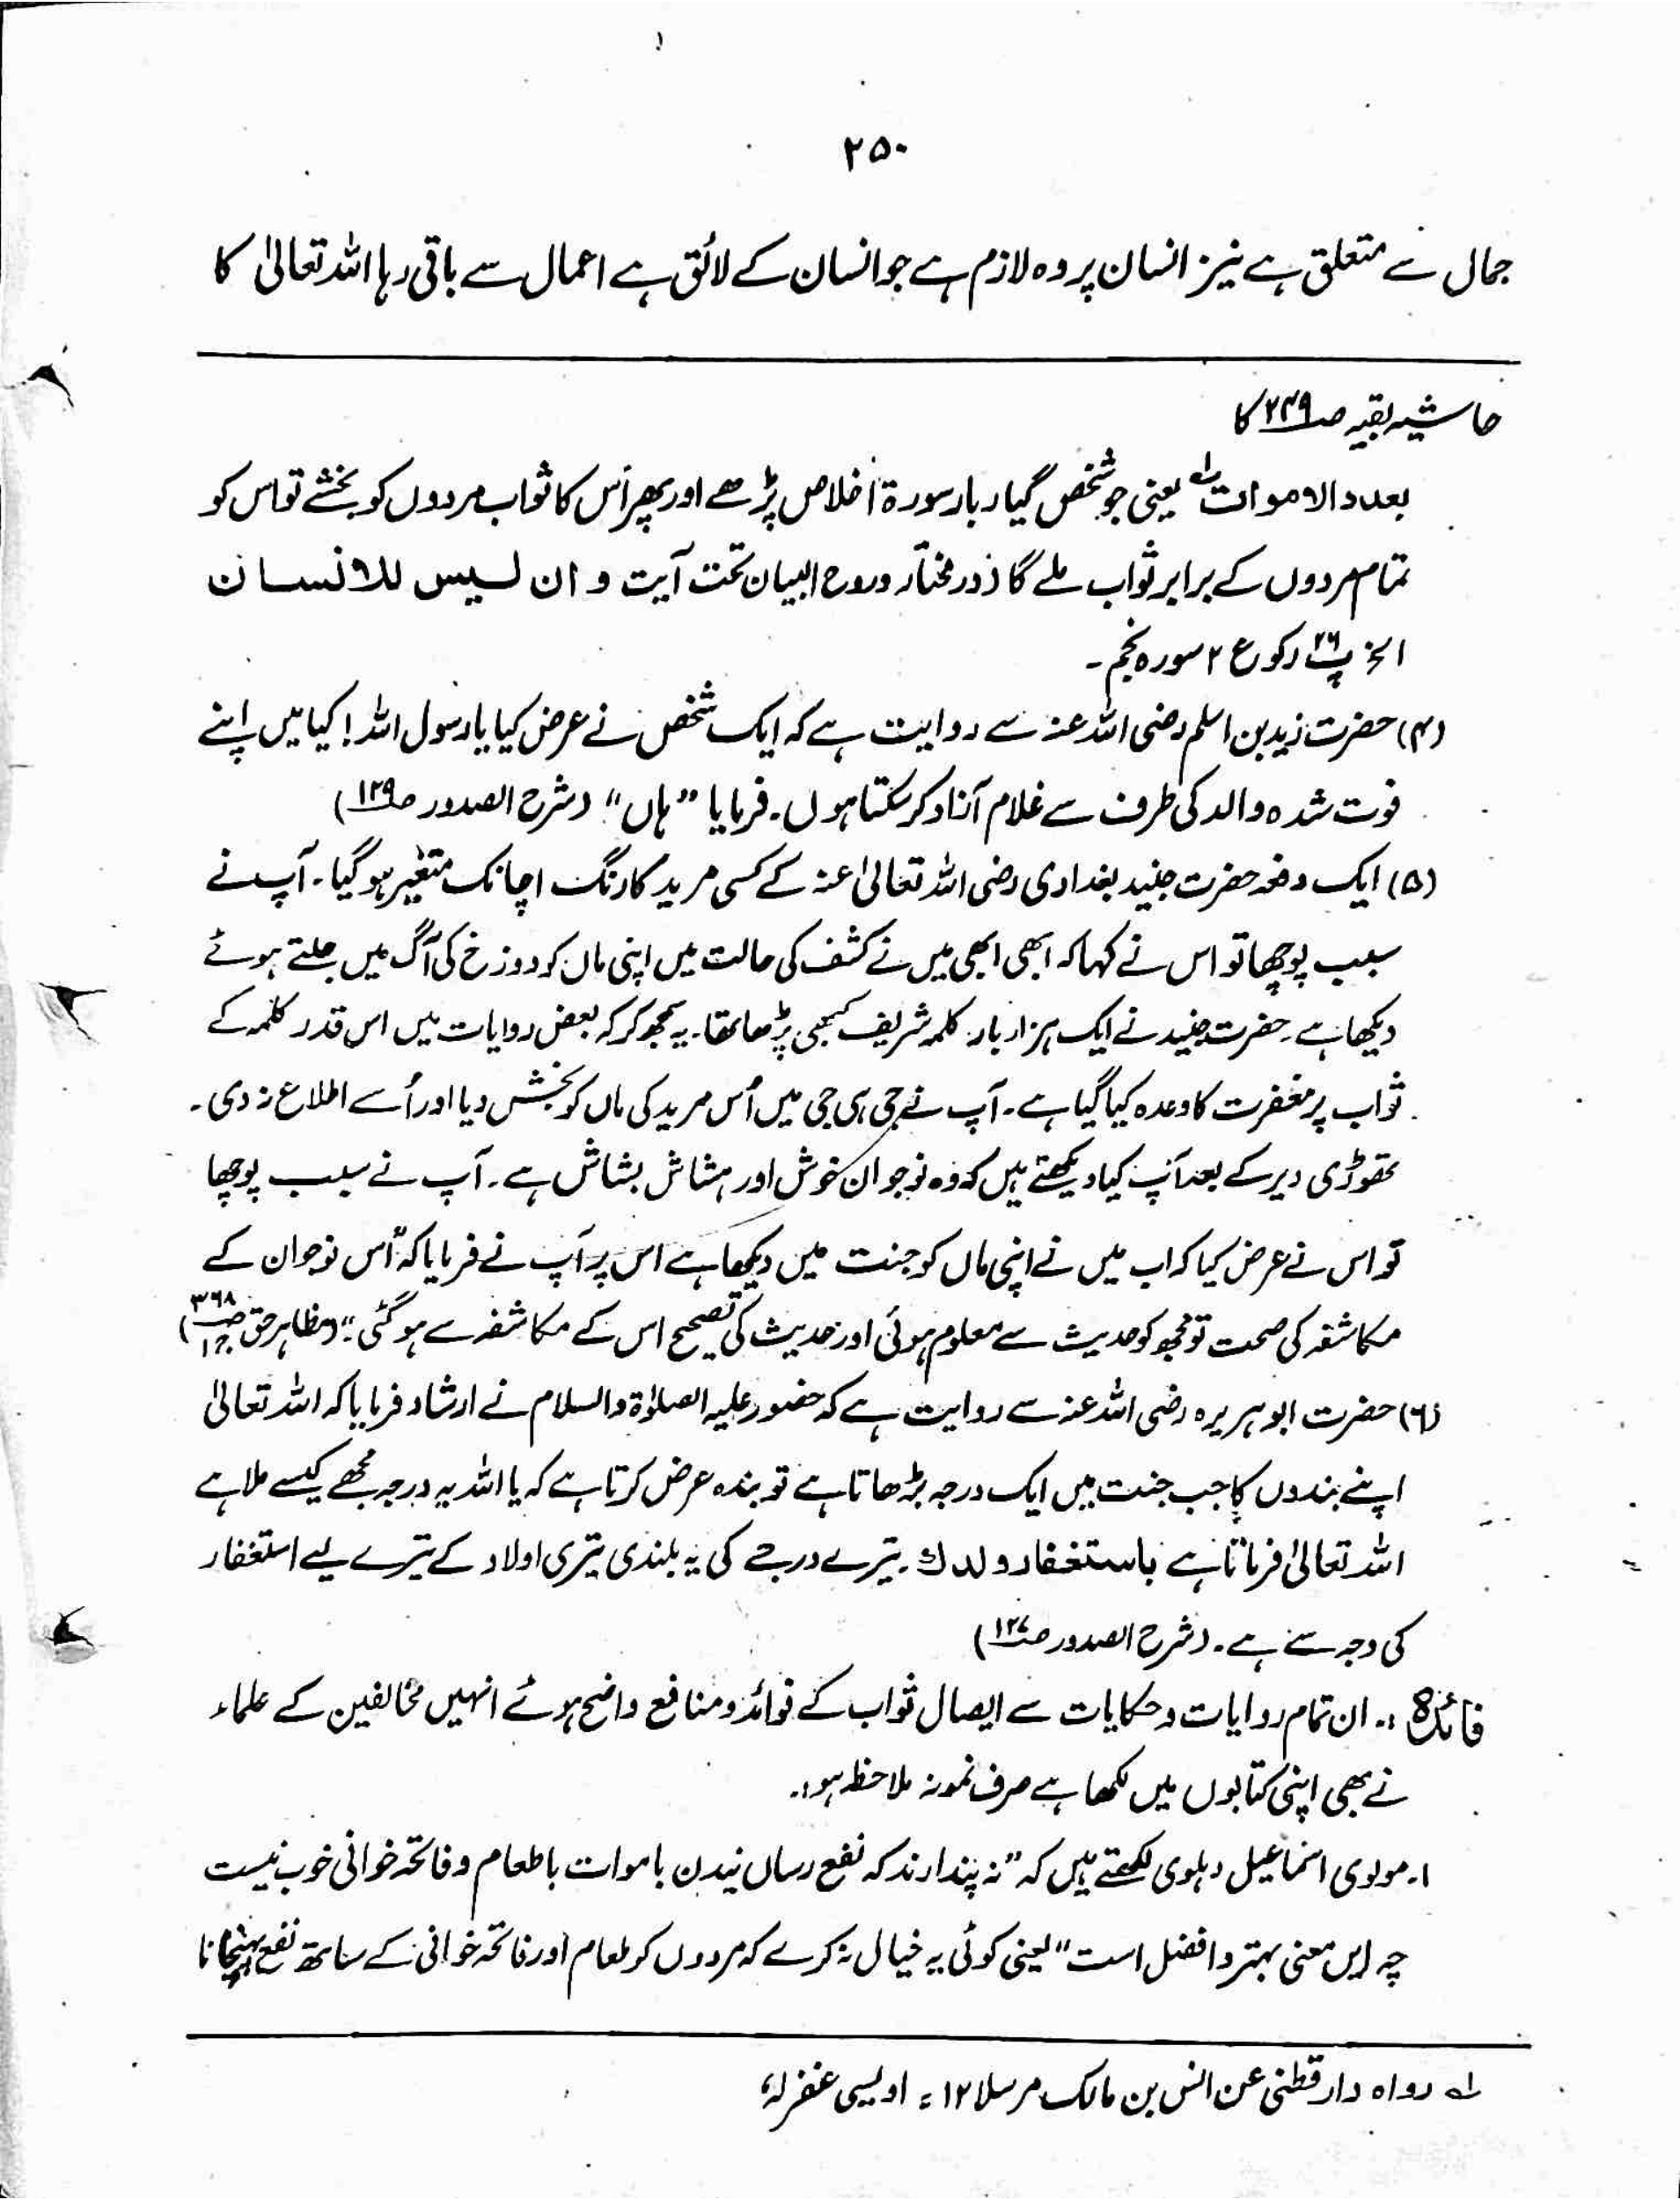 ۲۵۰
جمال سے متعلق ہے نیز انسان پر وہ لازم ہے جو انسان کے لائق ہے اعمال سے باقی رہا اللہ تعالیٰ کا
حاشیہ بقیہ صہ ۲۴۹ کا
بعدد الاموات لہ یعنی جو شخص گیارہ بار سورۃ اخلاص پڑھے اور پھر اس کا ثواب مردوں کو بخشے تو اس کو
تمام مردوں کے برابر ثواب ملے گا (در مختار و روح البیان تحت آیت و ان لیس للانسان
الخ پ ۲۶ رکوع ۲ سورہ نجم ۔
(۴) حضرت زید بن اسلم رضی اللہ عنہ سے روایت ہے کہ ایک شخص نے عرض کیا یا رسول اللہ! کیا میں اپنے
فوت شدہ والد کی طرف سے غلام آزاد کر سکتا ہوں۔ فرمایا "ہاں" (شرح الصدور صہ ۱۲۹)
(۵) ایک دفعہ حضرت جنید بغدادی رضی اللہ تعالیٰ عنہ کے کسی مرید کا رنگ اچانک متغیر ہو گیا۔ آپ نے
سبب پوچھا تو اس نے کہا کہ ابھی ابھی میں نے کشف کی حالت میں اپنی ماں کو دوزخ کی آگ میں جلتے ہوئے
دیکھا ہے۔ حضرت جنید نے ایک ہزار بار کلمہ شریف کبھی پڑھا تھا۔ یہ سمجھ کر کہ بعض روایات میں اس قدر کلمہ کے
ثواب پر مغفرت کا وعدہ کیا گیا ہے۔ آپ نے جی ہی جی میں اُس مرید کی ماں کو بخش دیا اور اُسے اطلاع نہ دی۔
تھوڑی دیر کے بعد آپ کیا دیکھتے ہیں کہ وہ نوجوان خوش اور ہشاش بشاش ہے۔ آپ نے سبب پوچھا
تو اس نے عرض کیا کہ اب میں نے اپنی ماں کو جنت میں دیکھا ہے اس پر آپ نے فرمایا کہ "اس نوجوان کے
مکاشفہ کی صحت تو مجھ کو حدیث سے معلوم ہوئی اور حدیث کی تصحیح اس کے مکاشفہ سے ہو گئی۔" (مظاہر حق صہ ۳۶۸ ج۱)
(۶) حضرت ابوہریرہ رضی اللہ عنہ سے روایت ہے کہ حضور علیہ الصلوٰۃ والسلام نے ارشاد فرمایا کہ اللہ تعالیٰ
اپنے بندوں کا جب جنت میں ایک درجہ بڑھاتا ہے تو بندہ عرض کرتا ہے کہ یا اللہ یہ درجہ مجھے کیسے ملا ہے
اللہ تعالیٰ فرماتا ہے باستغفار ولدك۔ تیرے درجے کی یہ بلندی تیری اولاد کے تیرے لیے استغفار
کی وجہ سے ہے۔ (شرح الصدور صہ ۱۲۷)
فائدہ :۔ ان تمام روایات و حکایات سے ایصال ثواب کے فوائد و منافع واضح ہوئے انہیں مخالفین کے علماء
نے بھی اپنی کتابوں میں لکھا ہے صرف نمونہ ملاحظہ ہو:۔
۱۔ مولوی اسماعیل دہلوی لکھتے ہیں کہ "نہ پندارند کہ نفع رسانیدن باموات باطعام و فاتحہ خوانی خوب نیست
چہ ایں معنی بہتر و افضل است" یعنی کوئی یہ خیال نہ کرے کہ مردوں کو طعام اور فاتحہ خوانی کے ساتھ نفع پہنچانا
لہ رواہ دار قطنی عن انس بن مالک مرسلا ۱۲ = اویسی غفرلہٗ